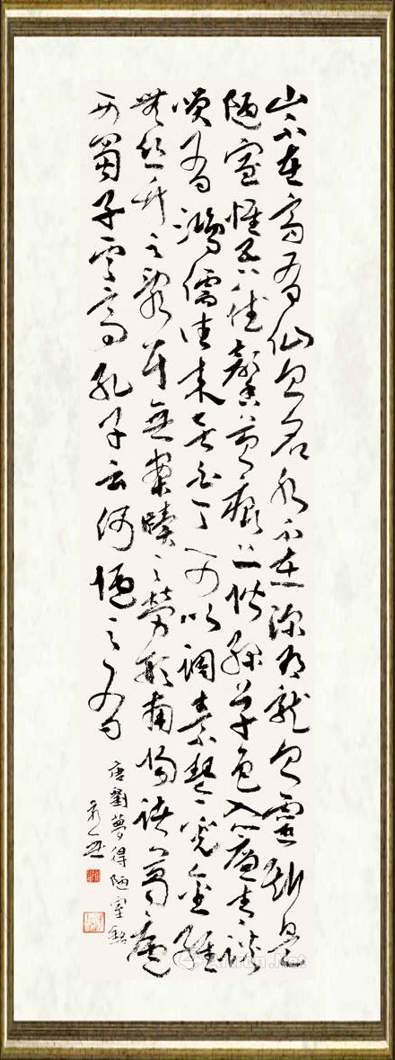 山不在高有仙則名水不在深有龍則靈斯是
陋室惟吾德馨苔痕上階綠草色入簾青談
笑有鴻儒往來無白丁可以調素琴閱金經
無絲竹之亂耳無案牘之勞形南陽諸葛廬
西蜀子雲亭孔子云何陋之有
唐劉夢得陋室銘